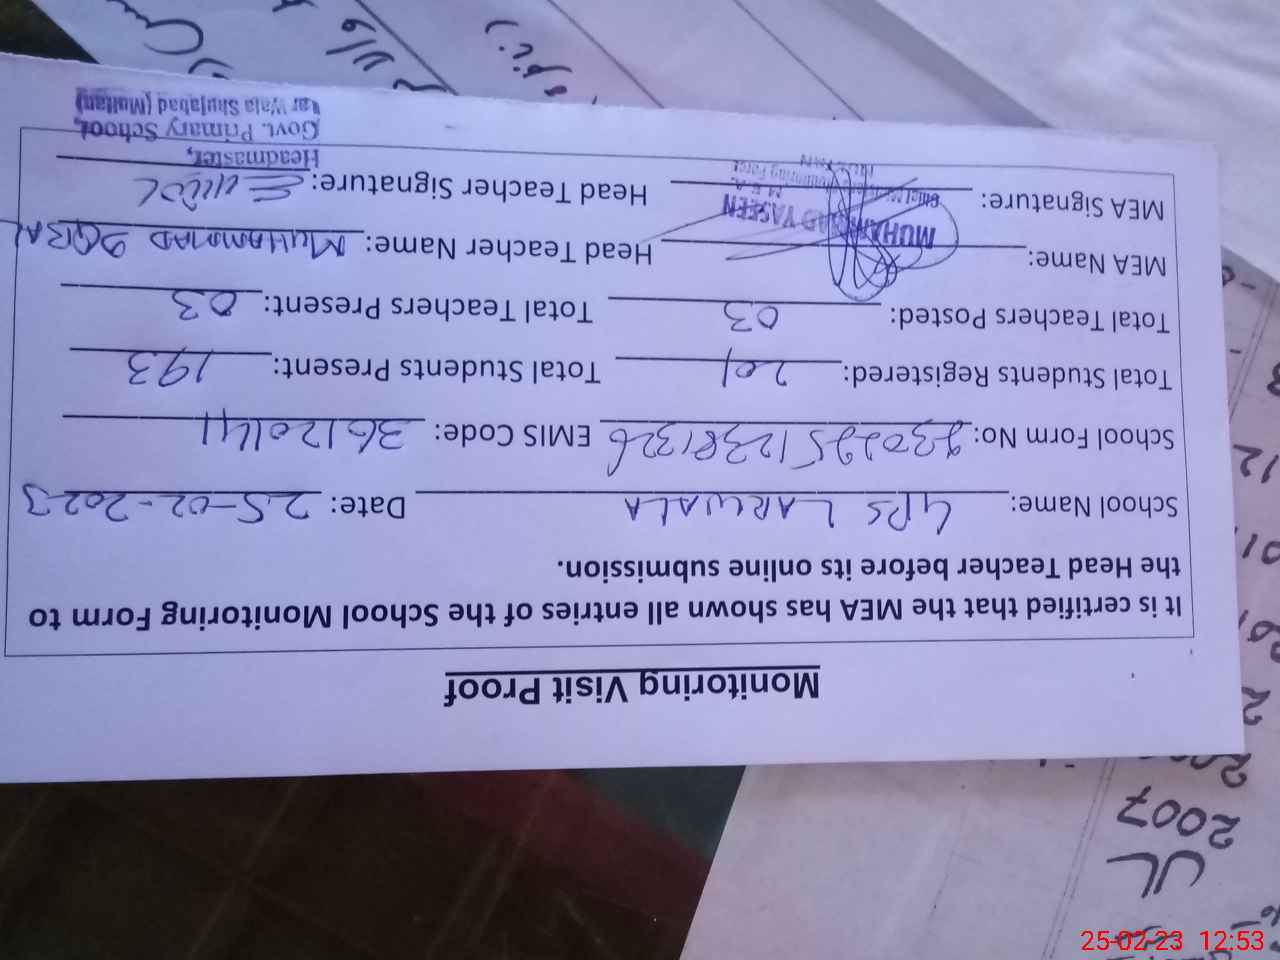 Monitoring Visit Proof
It is certified that the MEA has shown all entries of the School Monitoring Form to
the Head Teacher before its online submission.
School Name: GPS LARWALA Date: 25-02-2023
School Form No: 23022512381326 EMIS Code: 36120141
Total Students Registered: 201 Total Students Present: 193
Total Teachers Posted: 03 Total Teachers Present: 03
MEA Name: MUHAMMAD YASEEN Head Teacher Name: MUHAMMAD IQBAL
MEA Signature: M.E.A Head Teacher Signature:
Headmaster,
Govt. Primary School,
Lar Wala Shujabad (Multan)
2007
25-02-23 12:53